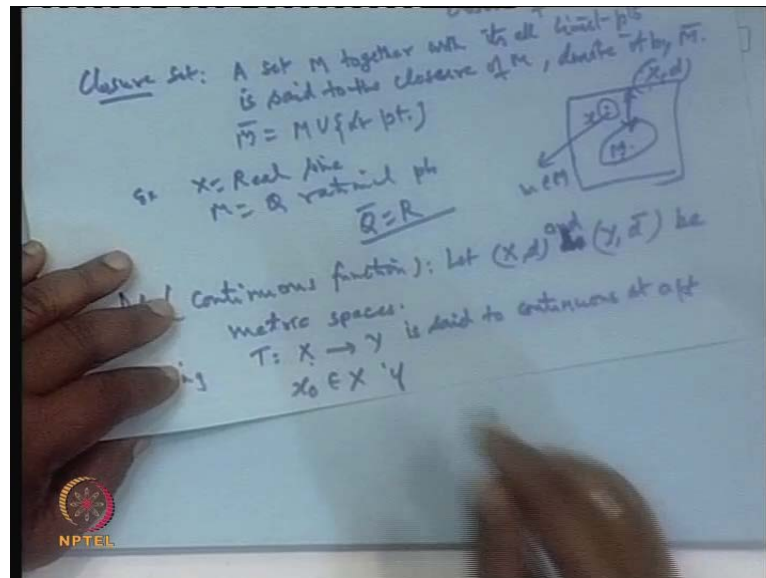 Closure Set: A set M together with its all limit pts
is said to the closure of M, denote it by M̅.
M̅ = M ∪ {lt pt.}
(X,d)
x
M
u ∈ M
Ex X = Real line
M = Q rational pts
Q̅ = R
(continuous function): Let (X,d) and (Y, d̅) be
metric spaces.
T: X → Y is said to continuous at a pt
x₀ ∈ X if
NPTEL